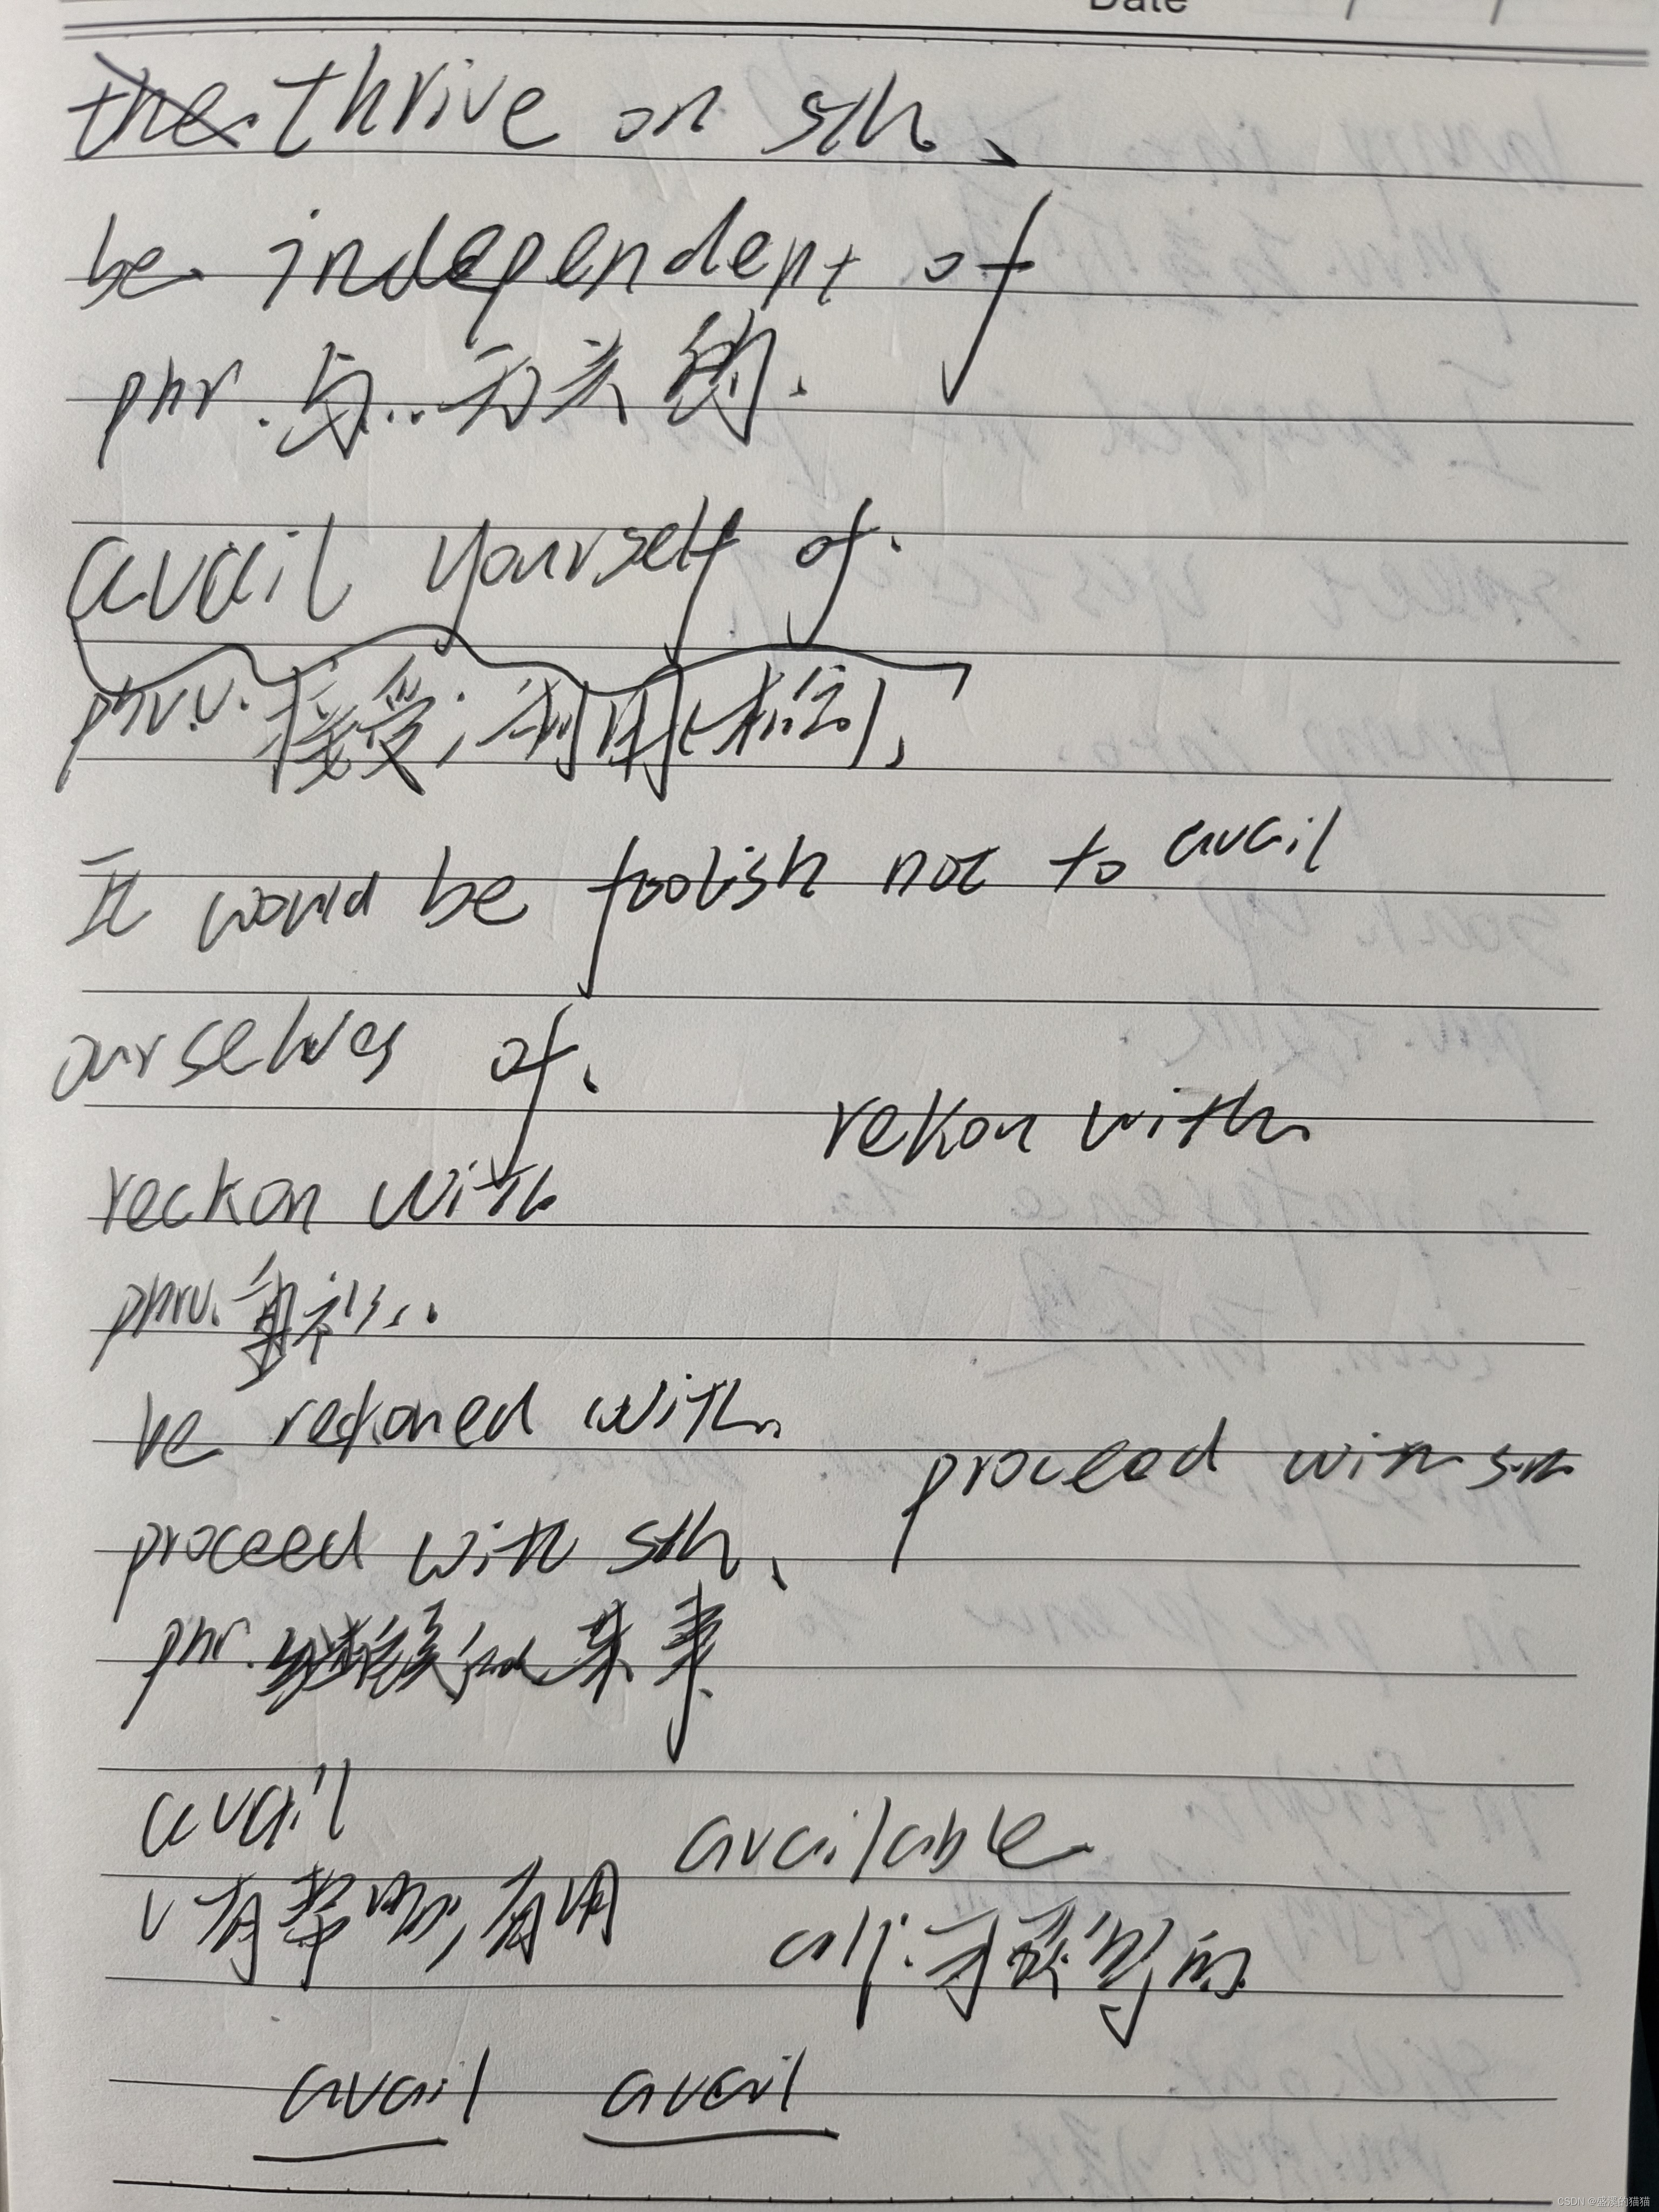 Date / /
the. thrive on sth.
be independent of
phr. 与...无关的.
avail yourself of.
phr.v. 接受;利用(机会)、
It would be foolish not to avail
ourselves of.
rekon with.
reckon with
phrv.
be reckoned with.
proceed with sth
proceed with sth.
phr. 继续做某事
avail
available
v 有帮助;有用
adj.可获得的
avail avail
CSDN @盛溪的猫猫